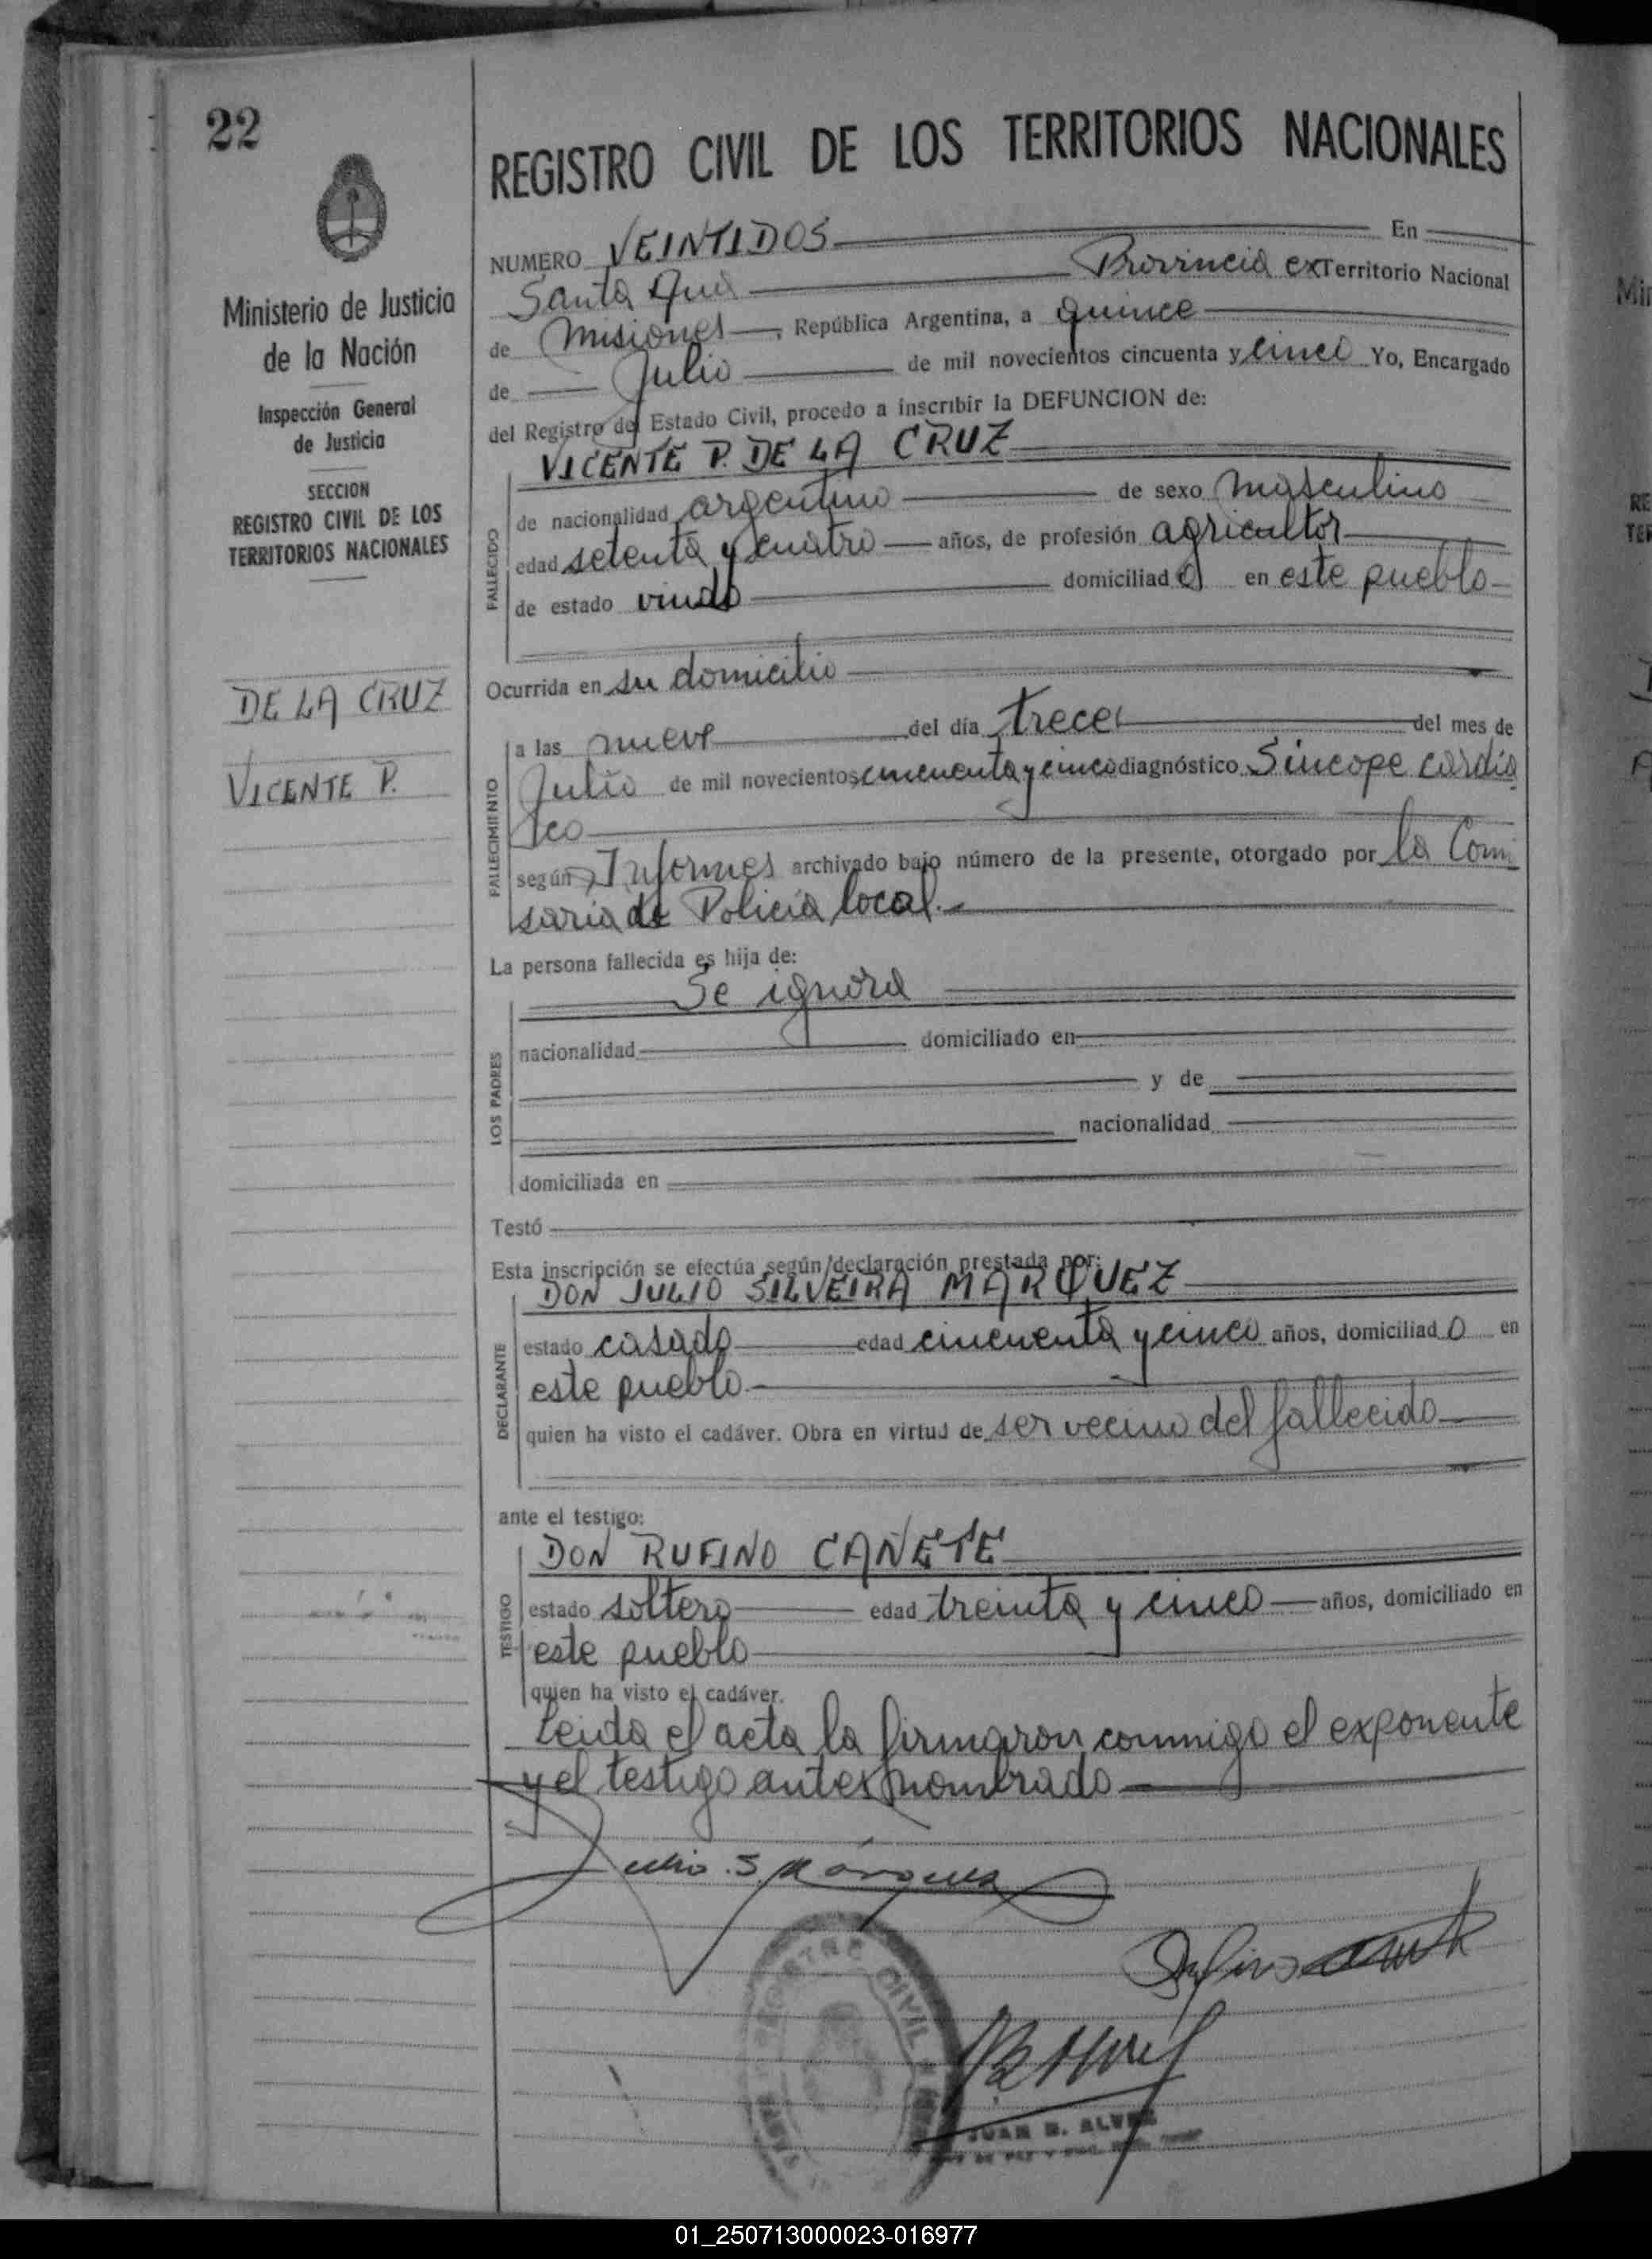 22
Ministerio de Justicia
de la Nación
Inspección General
de Justicia
SECCION
REGISTRO CIVIL DE LOS
TERRITORIOS NACIONALES
DE LA CRUZ
VICENTE P.
REGISTRO CIVIL DE LOS TERRITORIOS NACIONALES
NUMERO VEINTIDOS En
Santa Ana Provincia ex Territorio Nacional
de Misiones, República Argentina, a quince
de Julio de mil novecientos cincuenta y cinco Yo, Encargado
del Registro del Estado Civil, procedo a inscribir la DEFUNCION de:
VICENTE P. DE LA CRUZ
FALLECIDO
de nacionalidad argentino de sexo masculino
edad setenta y cuatro años, de profesión agricultor
de estado viudo domiciliado en este pueblo
Ocurrida en su domicilio
FALLECIMIENTO
a las nueve del día trece del mes de
Julio de mil novecientos cincuenta y cinco diagnóstico Síncope cardía
co
según Informes archivado bajo número de la presente, otorgado por la Comi
saria de Policía local.
La persona fallecida es hija de:
Se ignora
LOS PADRES
nacionalidad domiciliado en
y de
nacionalidad
domiciliada en
Testó
Esta inscripción se efectúa según declaración prestada por:
DON JULIO SILVEIRA MARQUEZ
DECLARANTE
estado casado edad cincuenta y cinco años, domiciliado en
este pueblo
quien ha visto el cadáver. Obra en virtud de ser vecino del fallecido
ante el testigo:
DON RUFINO CAÑETE
TESTIGO
estado soltero edad treinta y cinco años, domiciliado en
este pueblo
quien ha visto el cadáver.
Leida el acta la firmaron conmigo el exponente
y el testigo antes nombrado
Julio S. Marquez
JUAN B. ALVEZ
01_250713000023-016977